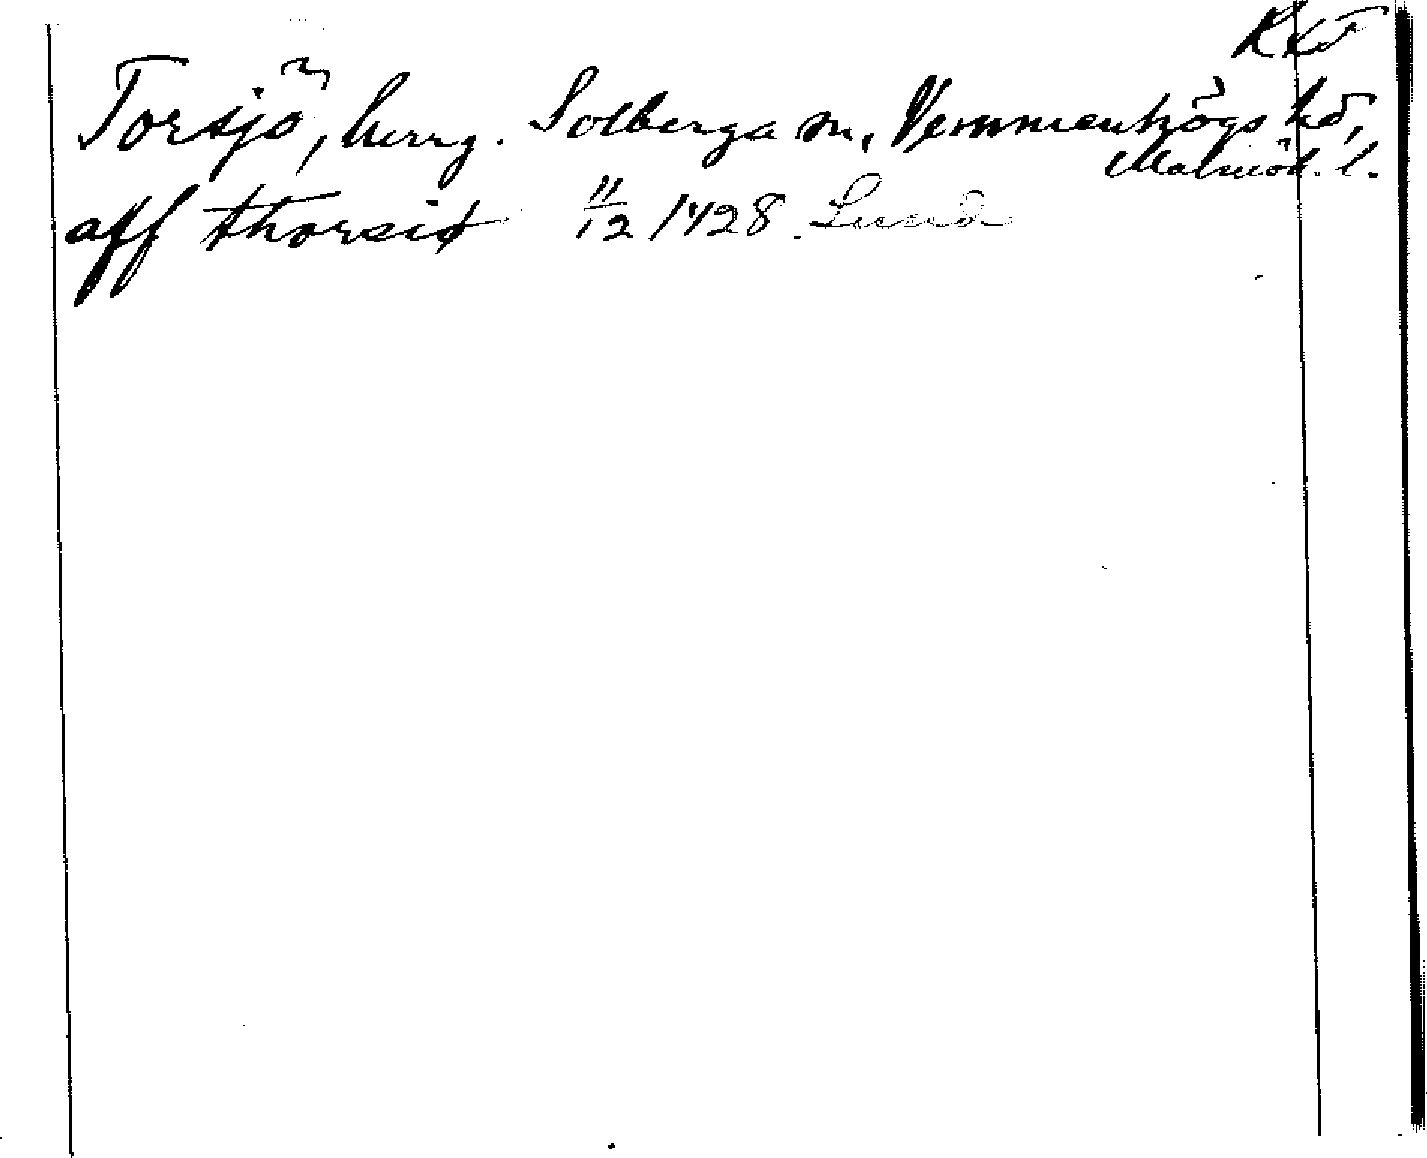 RKF
Torsjö, herrg. Solberga sn, Vemmenhögs hd,
Malmöh. l.
aff thorsiø 11/12 1428. Lund